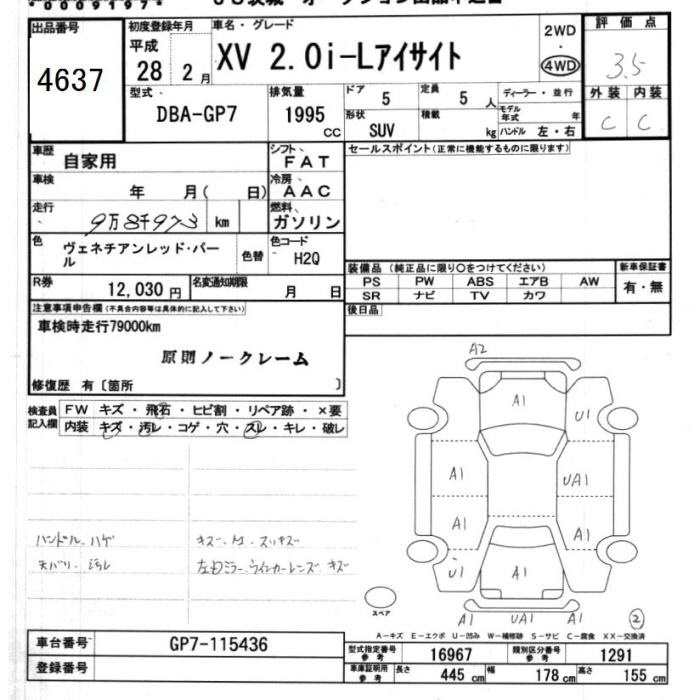 *0009197*
出品番号
4637
初度登録年月
平成
28 2 月
車名・グレード
XV 2.0i-Lアイサイト
2WD
・
4WD
評価点
3.5
外装 内装
C C
型式、
DBA-GP7
排気量
1995
CC
ドア
5
定員
5 人
ディーラー・並行
形状
SUV
積載
kg
モデル年式 年
ハンドル 左・右
車歴
自家用
シフト、
FAT
セールスポイント(正常に機能するものに限ります)
車検
年 月( 日)
冷房、
AAC
走行
9万8千973 km
燃料、
ガソリン
色
ヴェネチアンレッド・パール
色替
色コード
H2Q
装備品(純正品に限り○をつけてください)
新車保証書
PS PW ABS エアB AW
有・無
SR ナビ TV カワ
R券
12,030 円
名変通知期限
月 日
後日品
注意事項申告欄(不具合内容等は具体的に記入して下さい)
車検時走行79000km
原則ノークレーム
修復歴 有〔箇所 〕
検査員記入欄
FW キズ・飛石・ヒビ割・リペア跡・×要
内装 キズ・汚レ・コゲ・穴・スレ・キレ・破レ
A2
A1
U1
A1
UA1
A1
A1
U1
A1
A1
UA1
A1
②
ハンドル、ハゲ
天バリ、汚レ
左右ミラー、ウインカーレンズ キズ
スペア
A-キズ E-エクボ U-凹み W-補修跡 S-サビ C-腐食 XX-交換済
車台番号
GP7-115436
登録番号
型式指定番号
参考
16967
類別区分番号
参考
1291
車庫証明用
参考
長さ
445 cm
幅
178 cm
高さ
155 cm